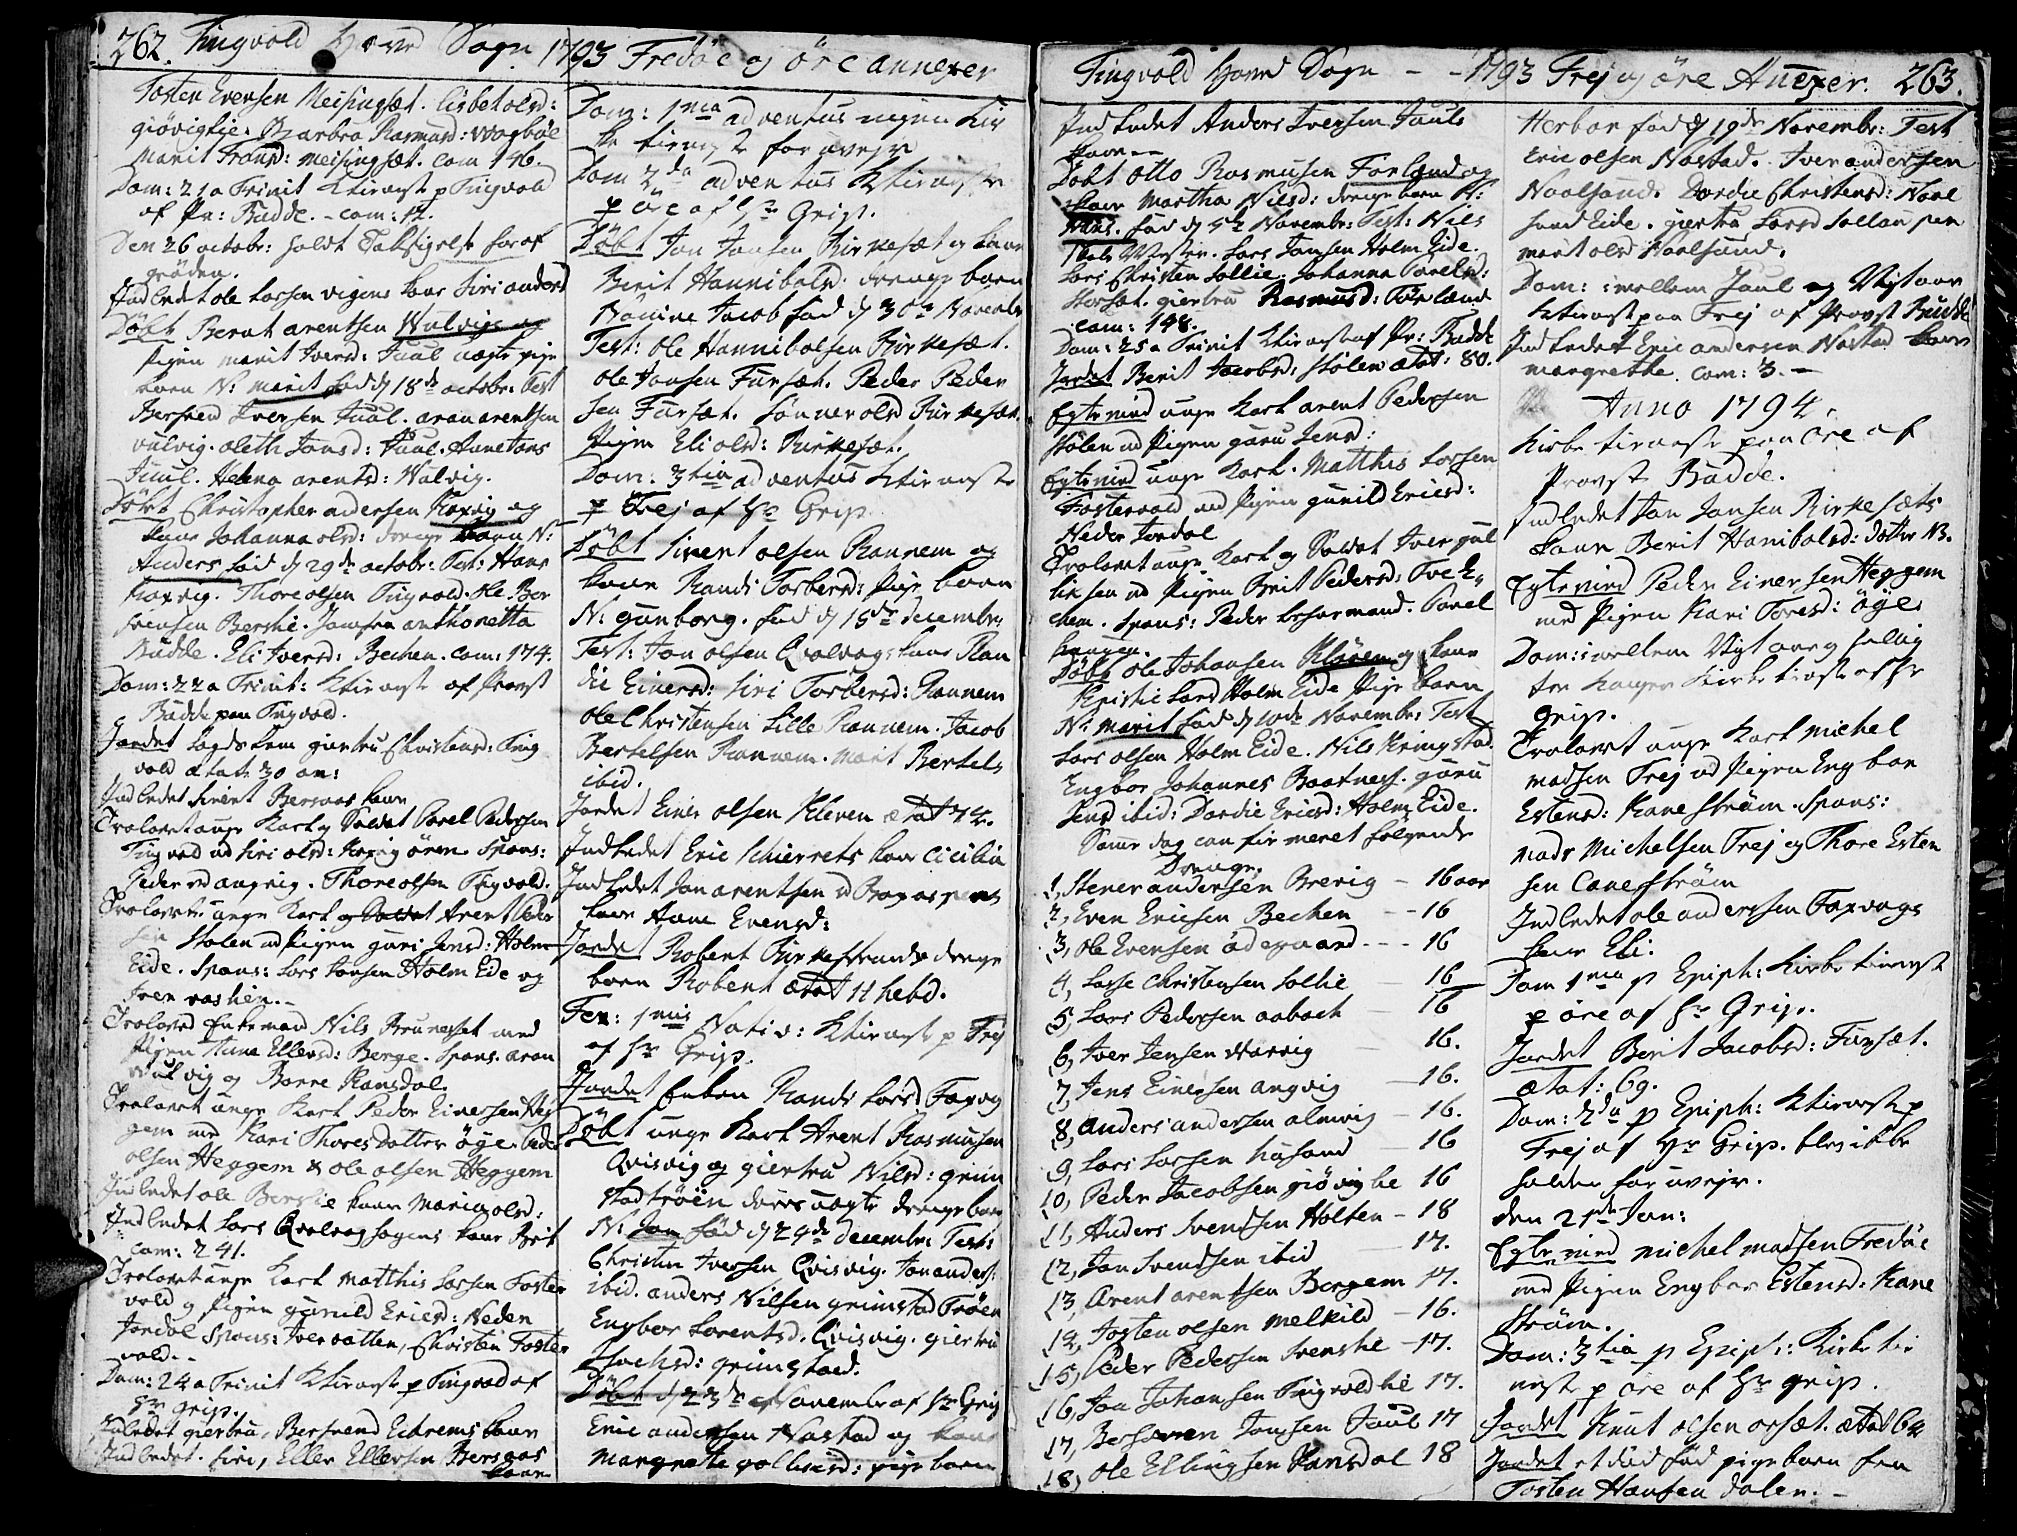 262. Tingvold Hoved Sogn 1793 Fredöe og öre annexer
Tosten Evensen Meisingset. Lisbet olsd:
giövigkie. Barbra Rasmusd: Wogböe
Marit Fransd: Meisingset. com 146.
Dom: 21a Trinit Ktienest p Tingvold
af Pr: Budde. - com: 12.
Den 26 octobr: holdt Taksigelse for af
gröden.
Indledet ole Larsen vigens kone Siri andersd
Döbt Berat arentsen Wulvigs og
Pigen marit Iversd: Juul uægte pige
barn N: marit fød d 18de octobr: Test
Berfved Iversen Juul. aran arentsen
vulvig. oleth Jonsd: Juul. Anne Jons
Juul. Helena arentsd: Wulvig.
Döbt Christopher adersen Koxvig og
kone Johanna olsd: drenge barn N:
Anders fød d 29de octobr: Test: Hans
Koxvig. Thore olsen Tingvold. ole Ber
svensen Berskie. Jomfru anthonetta
Budde. Eli Iversd: Bechen. com: 174.
Dom: 22a Trinit: Ktieneste af Provst
Budde paa Tingvold.
Jordet Lægds lem giertru Christensd: Ting
vold ætat: 30 an:
Indledet Sivert Bersaas kone
Trolovet unge Karl og Soldat Povel Pedersen
Tingvold med Siri olsd: Koxvig ören. Spons:
Peder ved angvig. Thore olsen Tingvold.
Trolovet unge Karl og Soldat Arent Peder
sen Stolen med Pigen guri Jensd: Holm
Eide. Spons: Lars Larsen Holm Eide og
Iver
Trolovet Enkemand Nils Brunesset med
Pigen Anne Ellensd: Berge. Spons. aran
Wulvig og Borre Kansdal.
Trolovet unge Karl Peder Einersen Heg
gem med Kari Thoresdatter öye.
olsen Heggem & ole olsen Heggem
Indledet ole Berskie kone Maria olsd:
Indledet Lars Qvalvog hagens kone Brit
com: 241.
Trolovet unge Karl Matthis Larsen Foster
vold og Pigen gunild Ericsd: Neder
Jordal Spons: Iver vatten, Christen Foster
vold.
Dom: 24a Trinit Ktienest p Tingvold af
Hr grip.
Indledet giertru, Bersvend Echrems kone
Indledet. Siri, Eller Ellersen Bersaas
kone
Dom: 1ma adventus ingen Kir
ke tieneste for uveyr
Dom 2da adventus Ktieneste
p öre af Hr Grip.
Döbt Jon Jonsen Birkesæt og kone
Berit Hannibalsd: drenge barn
Navne Jacob fød d 30te Novembr
Test: ole Hannibalsen Birkesæt.
ole Jonsen Fursæt. Peder Peder
sen Fursæt. Sönner olsd Birkesæt.
Pigen Eli olsd: Birkesæt.
Dom: 3tia adventus Ktieneste
p Frej af Hr Grip
Döbt Sivert olsen Rannem og
kone Randi Torbersd: Pige barn
N: gunborg. fød d 15de decembr:
Test: Jon olsen Qvalvogs kone Ran
die Einersd: Siri Torbersd: Rannem
ole Christensen Lille Rannem. Jacob
Bertelsen Rannem. Marit Bertels
ibid.
Jordet Einer olsen Kleven ætat 74.
Indledet Eric Schierrets kone Cicilia
Indledet Jon arentsen
kone Anne Evensd:
Jordet Robert Birkestrands drenge
barn Robert ætat 11 hebd.
Fer: 1mis Nativ: Ktieneste p Frej
af Hr Grip.
Jordet Enken Randi Larsd Foxvog
Döbt unge Karl Arent Rasmusen
Qvisvig og giertru Nilsd: grim
stad tröen deres uægte drenge barn
N: Jon fød d 24de decembr: Test:
Christen Iversen Qvisvig. Jon anders:
ibid. anders Nilsen grimstad Tröen
Engbor Lorentsd. Qvisvig. giertru
Isachsd: grimstad.
Döbt d 23de Novembr af Hr Grip
Eric andersen Nastad og kone
Margrette pige barn
Tingvold Hoved Sogn - - 1793 Frej og öre Anexer. 263.
Indledet Anders Iversen Juuls
kone
Döbt Otto Rasmusen Forland og
kone Martha Nilsd: drenge barn N:
Nils. fød d 5te Novembr: Test: Nils
Lars Jonsen Holm Eide.
Lars Christen Sollie. Johanna Povelsd:
giertru Rasmusd: Förland
com: 148.
Dom: 25a Trinit Ktieneste af Pr: Budde
Jordet Berit Jacobsd: Stolen ætat: 80.
Egteviedt unge Karl arent Pedersen
Stolen med Pigen guru Jensd:
Egteviedt unge Karl. Matthis Larsen
Fostervold med Pigen gunild Ericsd:
Neder Jordal
Trolovet unge Karl og Soldat Iver gul
liksen med Pigen Brit Pedersd: Tveek
rem. Spons: Peder Povel
Döbt ole Johansen Kloven og kone
Kristie Larsd Holm Eide Pige barn
N: marit fød d 10de Novembr: Test
Lars olsen Holm Eide. Nils Kringstad.
Engbor Johannes Baatness. guru
Jensd ibid: Dordie Ericsd: Holm Eide.
Samme dag confirmeret fölgende
Drenge.
1, Stener andersen Brevig - 16 aar
2, Even Ericsen Bechen - - 16
3, ole Evensen ödegaard - - - 16
4, Lasse Christensen Sollie - 16
5, Lars Pedersen aaboch - 16
6, Iver Jensen Warvig - 16.
7, Jens Einersen angvig - 16.
8, Anders andersen almvig - 16.
9, Lars Larsen husund - 16
10, Peder Jacobsen giövigkie 16
11, Anders Svendsen Holten - 18
12, Jon Svendsen ibid - 17.
13, Arent arentsen Bergem 17.
14, Josten olsen Melkild - 16.
15, Peder Pedersen Svenskie - 17.
16, Jon Johansen Tingvoldlie 17.
17, Bersveen Jonsen Juul 17
18, Ole Ellingsen Kansdal 18
Herbor fød d 19de Novembr: Test
Eric olsen Nastad. Iver andersen
Noalsund. Dordie Christensd: Noal
sund Eide. giertru Larsd
marit olsd Noalsund.
Dom: imellem Juul og Nytaar
Ktieneste paa Frej af Provst Budde
Indledet Eric andersen Nastad kone
margrethe. com: 3. -
Anno 1794.
Kirke tieneste paa öre af
Provst Budde.
Indledet Jon Jonsen Birkesæts
kone Berit Hanibalsd:
Egteviedt Peder Einersen Heggem
med Pigen Kari Toresd: öye.
Dom: imellem Nytaar og hellig
tre Konger Kirke tieneste af Hr
grip.
Trolovet unge Karl michel
madsen Frej med Pigen Engbor
Estensd: Kaneström. Spons:
mads Michelsen Frej og Thore Esten
sen Caneström
Indledet ole anderssen Foxvogs
kone Eli.
Dom 1ma p Epiph: Kirke tieneste
p öre af Hr Grip.
Jordet Berit Jacobsd: Fursæt.
ætat: 69.
Dom: 2da p Epiph: Ktieneste p
Frej af Hr Grip. blev ikke
holden for uveyr.
den 21de Jan:
Egteviedt michel madsen Fredöe
med Pigen Engbor Estensd: Kane
ström.
Dom: 3tia p Epiph: Kirke tie
neste p öre af Hr grip.
Jordet Knut olsen orset. ætat 64
Jordet et död fød pige barn fra
Tosten Hansen Dalen. -